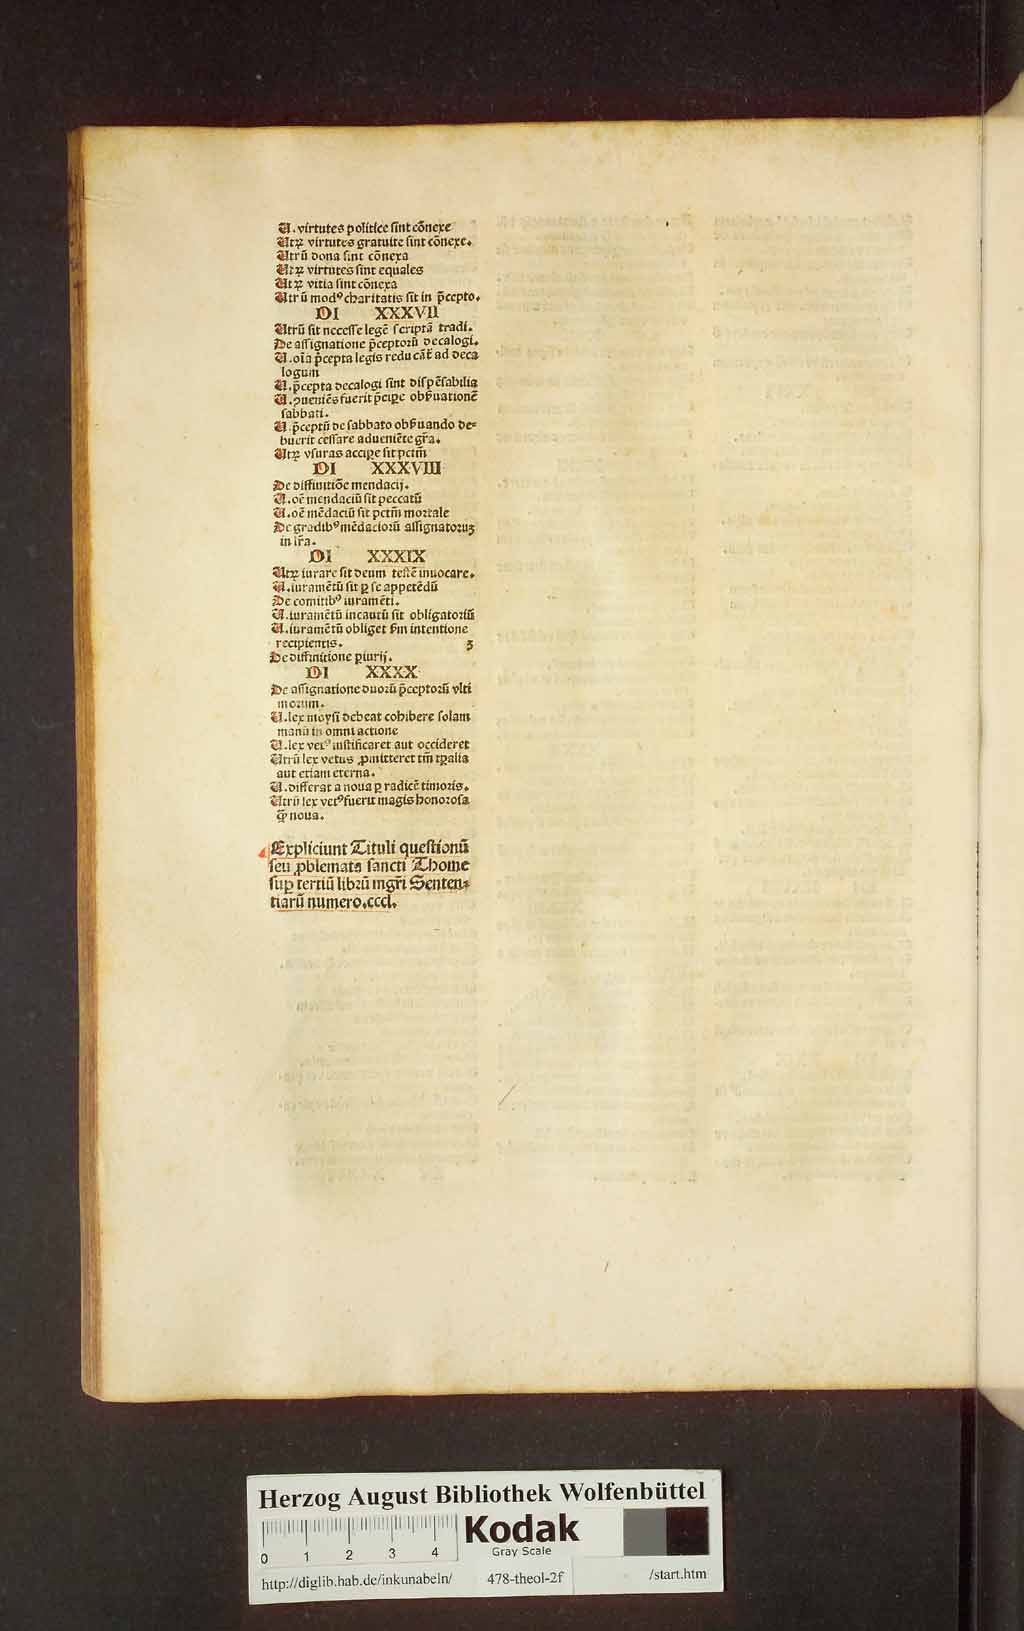 U. virtutes politice sint cõnexe
Utꝝ virtutes gratuite sint cõnexe.
Utrũ dona sint cõnexa
Utꝝ virtutes sint equales
Utꝝ vitia sint cõnexa
Utrũ modꝰ charitatis sit in p̃cepto.
DI XXXVII
Utrũ sit necesse legẽ scriptã tradi.
De assignatione p̃ceptorũ decalogi.
U. oĩa p̃cepta legis reducãt̃ ad deca
logum
U. p̃cepta decalogi sint dispẽsabilia
U. ꝯueniẽs fuerit p̃cipe obẜuationẽ
sabbati.
U. p̃ceptũ de sabbato obẜuando de⸗
buerit cessare adueniẽte gr̃a.
Utꝝ vsuras accipe sit pctm̃
DI XXXVIII
De diffinitiõe mendacij.
U. oẽ mendaciũ sit peccatũ
U. oẽ mẽdaciũ sit pctm̃ mortale
De gradibꝰ mẽdaciorũ assignatoruꝫ
in lr̃a.
DI XXXIX
Utꝝ iurare sit deum testẽ inuocare.
U. iuramẽtũ sit ꝑ se appetẽdũ
De comitibꝰ iuramẽti.
U. iuramẽtũ incautũ sit obligatoriũ
U. iuramẽtũ obliget ẜm intentione
recipientis. ꝫ
De diffinitione ꝑiurij.
DI XXXX
De assignatione duorũ p̃ceptorũ vlti
morum.
U. lex moysi debeat cohibere solam
manũ in omni actione
U. lex vetꝰ iustificaret aut occideret
Utrũ lex vetus ꝓmitteret tm̃ tꝑalia
aut etiam eterna.
U. differat a noua ꝑ radicẽ timoris.
Utrũ lex vetꝰ fuerit magis honorosa
q̃ꝫ noua.
Expliciunt Tituli questionũ
seu ꝓblemata sancti Thome
suꝑ tertiũ librũ mgr̃i Senten⸗
tiarũ numero.cccl.
Herzog August Bibliothek Wolfenbüttel
Kodak
Gray Scale
0 1 2 3 4
http://diglib.hab.de/inkunabeln/ 478-theol-2f /start.htm